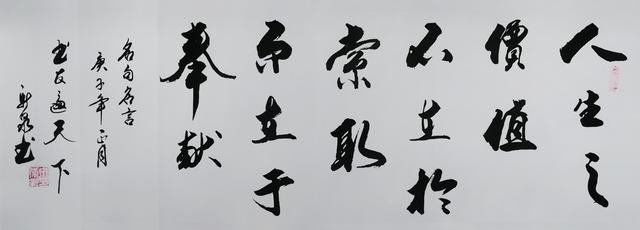 人生之
價值
不在於
索取
而在于
奉献
名句名言
庚子年正月
书友遍天下